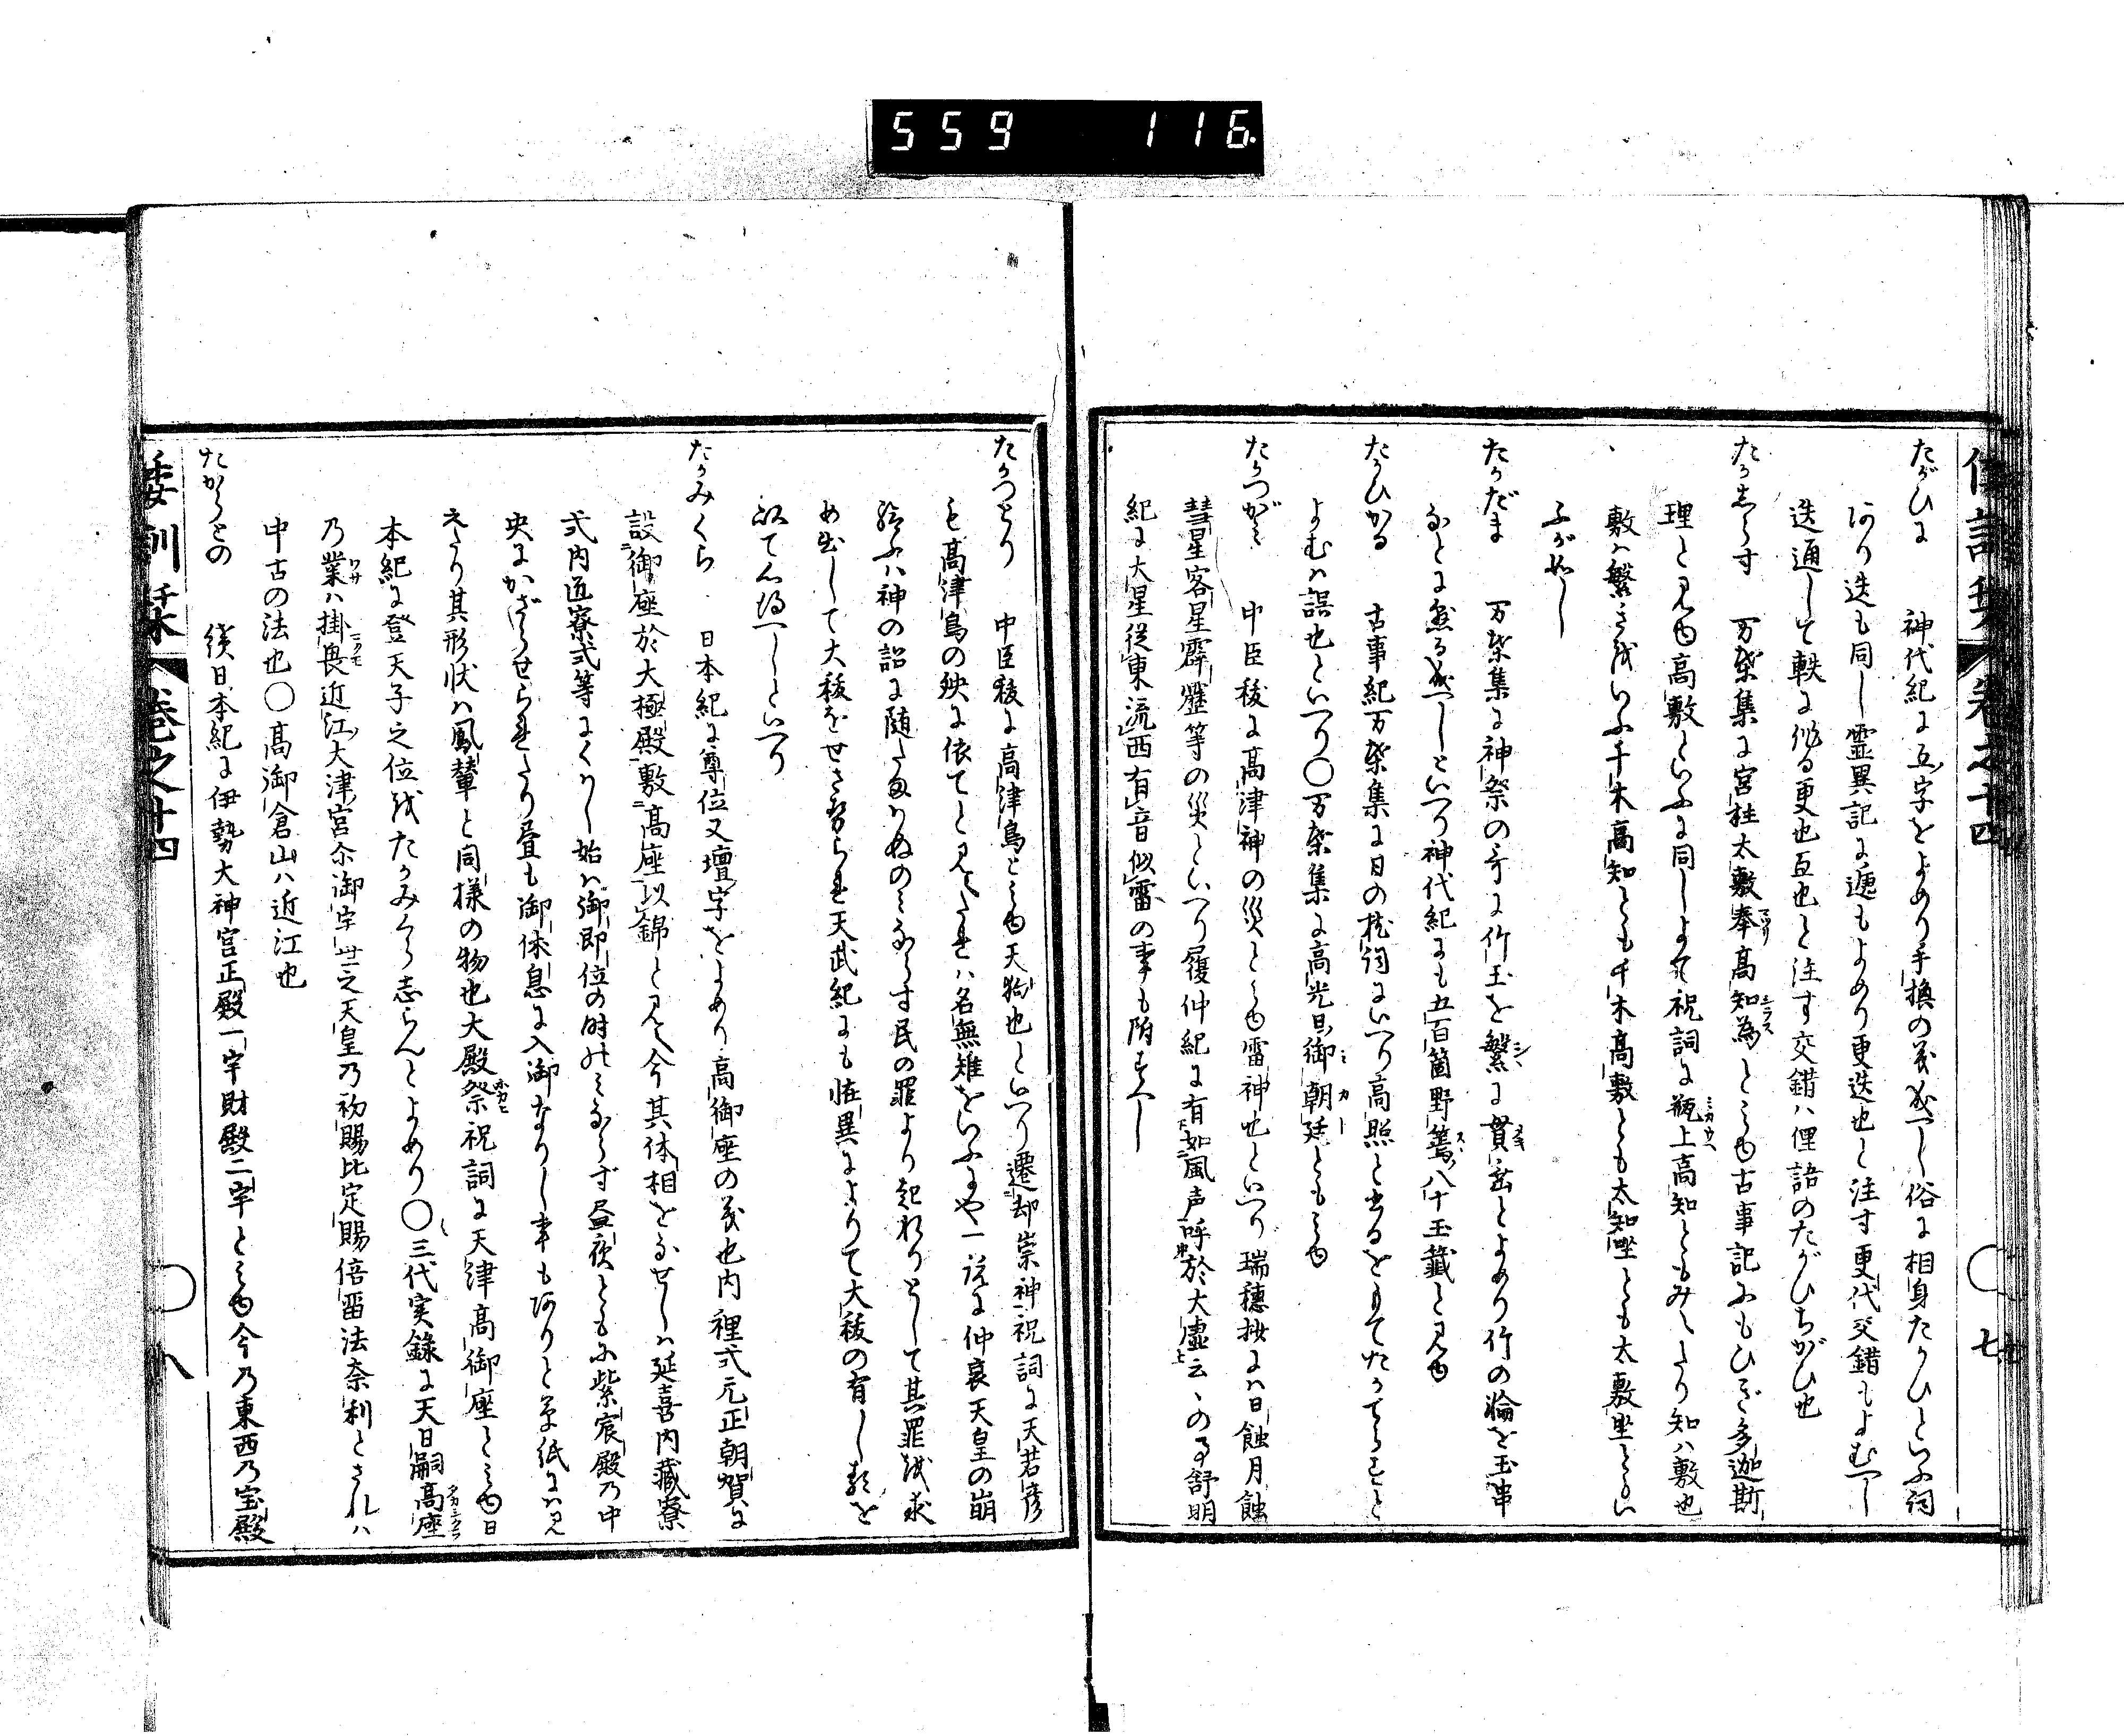 559 116
倭訓栞 巻之十四 ○ 七
たがひに 神代紀に互字をよめり手換の義成へし俗に相身たかひといふ詞
あり迭も同し霊異記に逓もよめり更迭也と注す更代交錯もよむへし
迭通して軼に作る更也互也と注す交錯ハ俚語のたがひちがひ也
たかしらす 万葉集に宮柱太敷奉高知為とみゆ古事記にもひぎ多迦斯
理と見ゆ高敷といふに同しよて祝詞に瓺上高知ともみえたり知ハ敷也
敷ハ繁き成いふ千木高知とも千木高敷とも太知座とも太敷坐ともい
ふが如し
たかだま 万葉集に神祭の哥に竹玉を繁に貫垂とよめり竹の輪を玉串
なとに懸る成へしといへり神代紀にも五百箇野篶八十玉籤と見ゆ
たかひかる 古事紀万葉集に日の枕詞にいへり高照と書るをもてたかてらすと
よむハ誤也といへり○万葉集に高光日御朝廷ともみゆ
たかつがみ 中臣祓に高津神の災とみゆ雷神也といへり瑞穂抄にハ日蝕月蝕
彗星客星霹靂等の災といへり履仲紀に有如風声呼於大虚云々の事舒明
紀に大星従東流西有音似雷の事も附すへし
たかつとり 中臣祓に高津鳥とみゆ天狗也といへり遷却祟神祝詞に天若彦
も高津鳥の殃に依てと見えたれハ名無雉をいふにや一説に仲哀天皇の崩
給ふハ神の詔に随たまハぬのみならす民の罪より起れりとして其罪成求
め出して大祓をせさせられ天武紀にも怪異によりて大祓の有し類を
以て心得へしといへり
たかみくら 日本紀に尊位又壇字をよめり高御座の義也内裡式元正朝賀に
設御座於大極殿敷高座以錦と見え今其体相をなせしハ延喜内蔵寮
式内匠寮式等にくハし始ハ御即位の時のみならず昼夜ともに紫宸殿乃中
央にかざらせられたり昼も御休息に入御なりし事も有りと草紙にハ見
えたり其形状ハ鳳輦と同様の物也大殿祭祝詞に天津高御座とみゆ日
本紀に登天子之位成たかみくら志らんとよめり○三代実録に天日嗣高座
乃業ハ掛畏近江大津宮尒御宇世之天皇乃初賜比定賜倍留法奈利とされハ
中古の法也○高御倉山ハ近江也
たからとの 続日本紀に伊勢大神宮正殿一宇財殿二宇とみゆ今乃東西乃宝殿
倭訓栞 巻之十四 ○ 八